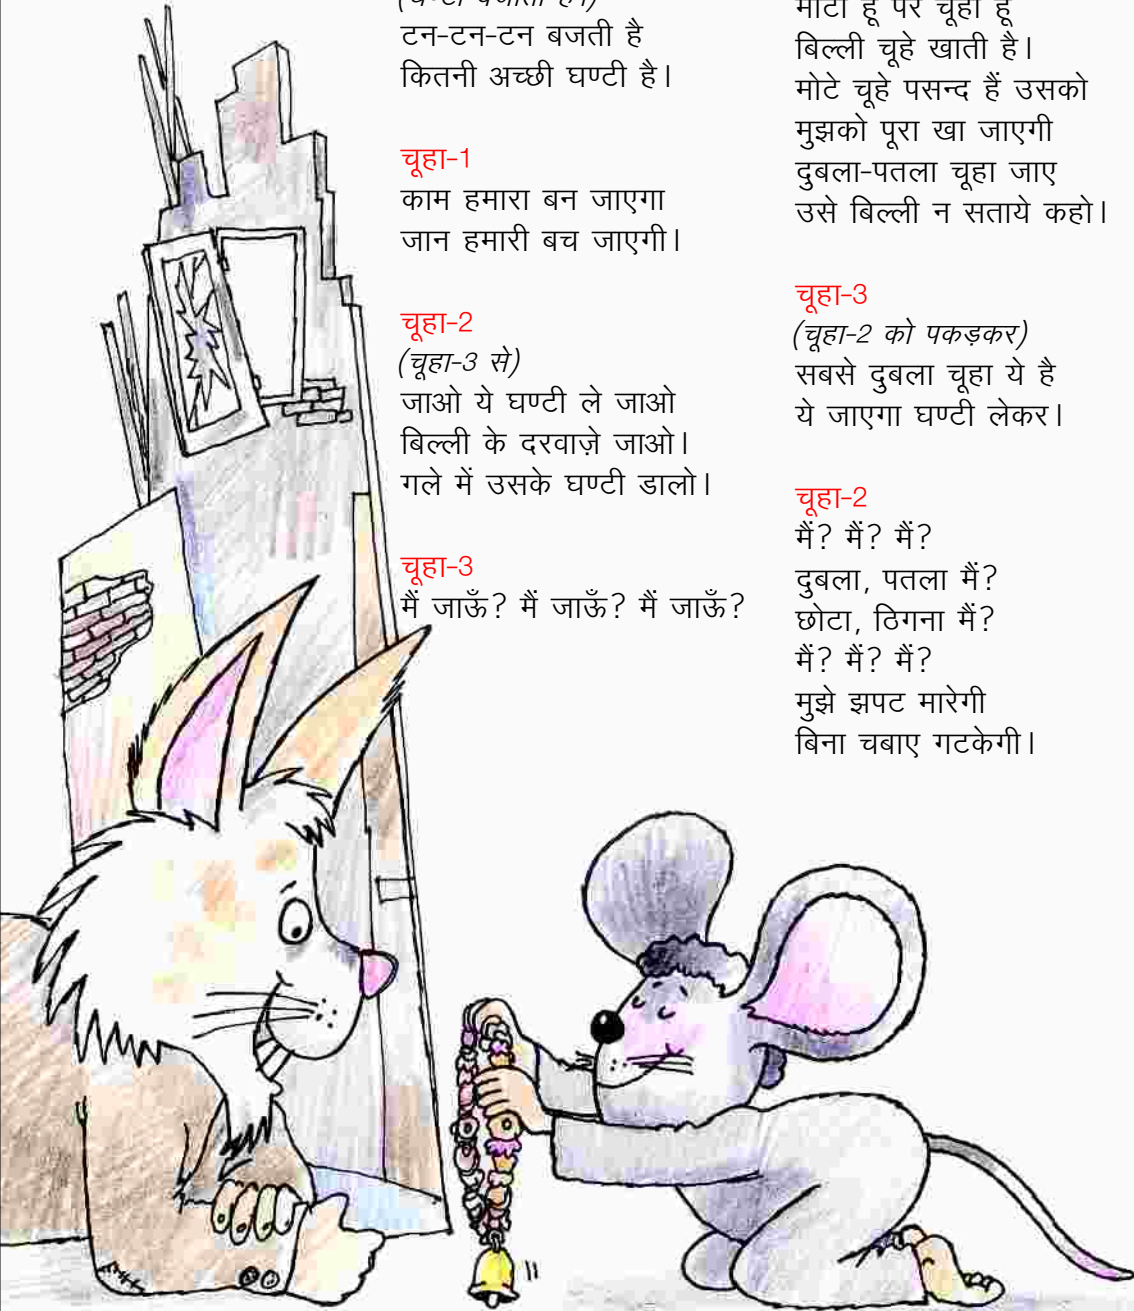 (घण्टी बजाता है।)
टन-टन-टन बजती है
कितनी अच्छी घण्टी है।
चूहा-1
काम हमारा बन जाएगा
जान हमारी बच जाएगी।
चूहा-2
(चूहा-3 से)
जाओ ये घण्टी ले जाओ
बिल्ली के दरवाज़े जाओ।
गले में उसके घण्टी डालो।
चूहा-3
मैं जाऊँ? मैं जाऊँ? मैं जाऊँ?
मोटा हूँ पर चूहा हूँ
बिल्ली चूहे खाती है।
मोटे चूहे पसन्द हैं उसको
मुझको पूरा खा जाएगी
दुबला-पतला चूहा जाए
उसे बिल्ली न सताये कहो।
चूहा-3
(चूहा-2 को पकड़कर)
सबसे दुबला चूहा ये है
ये जाएगा घण्टी लेकर।
चूहा-2
मैं? मैं? मैं?
दुबला, पतला मैं?
छोटा, ठिगना मैं?
मैं? मैं? मैं?
मुझे झपट मारेगी
बिना चबाए गटकेगी।